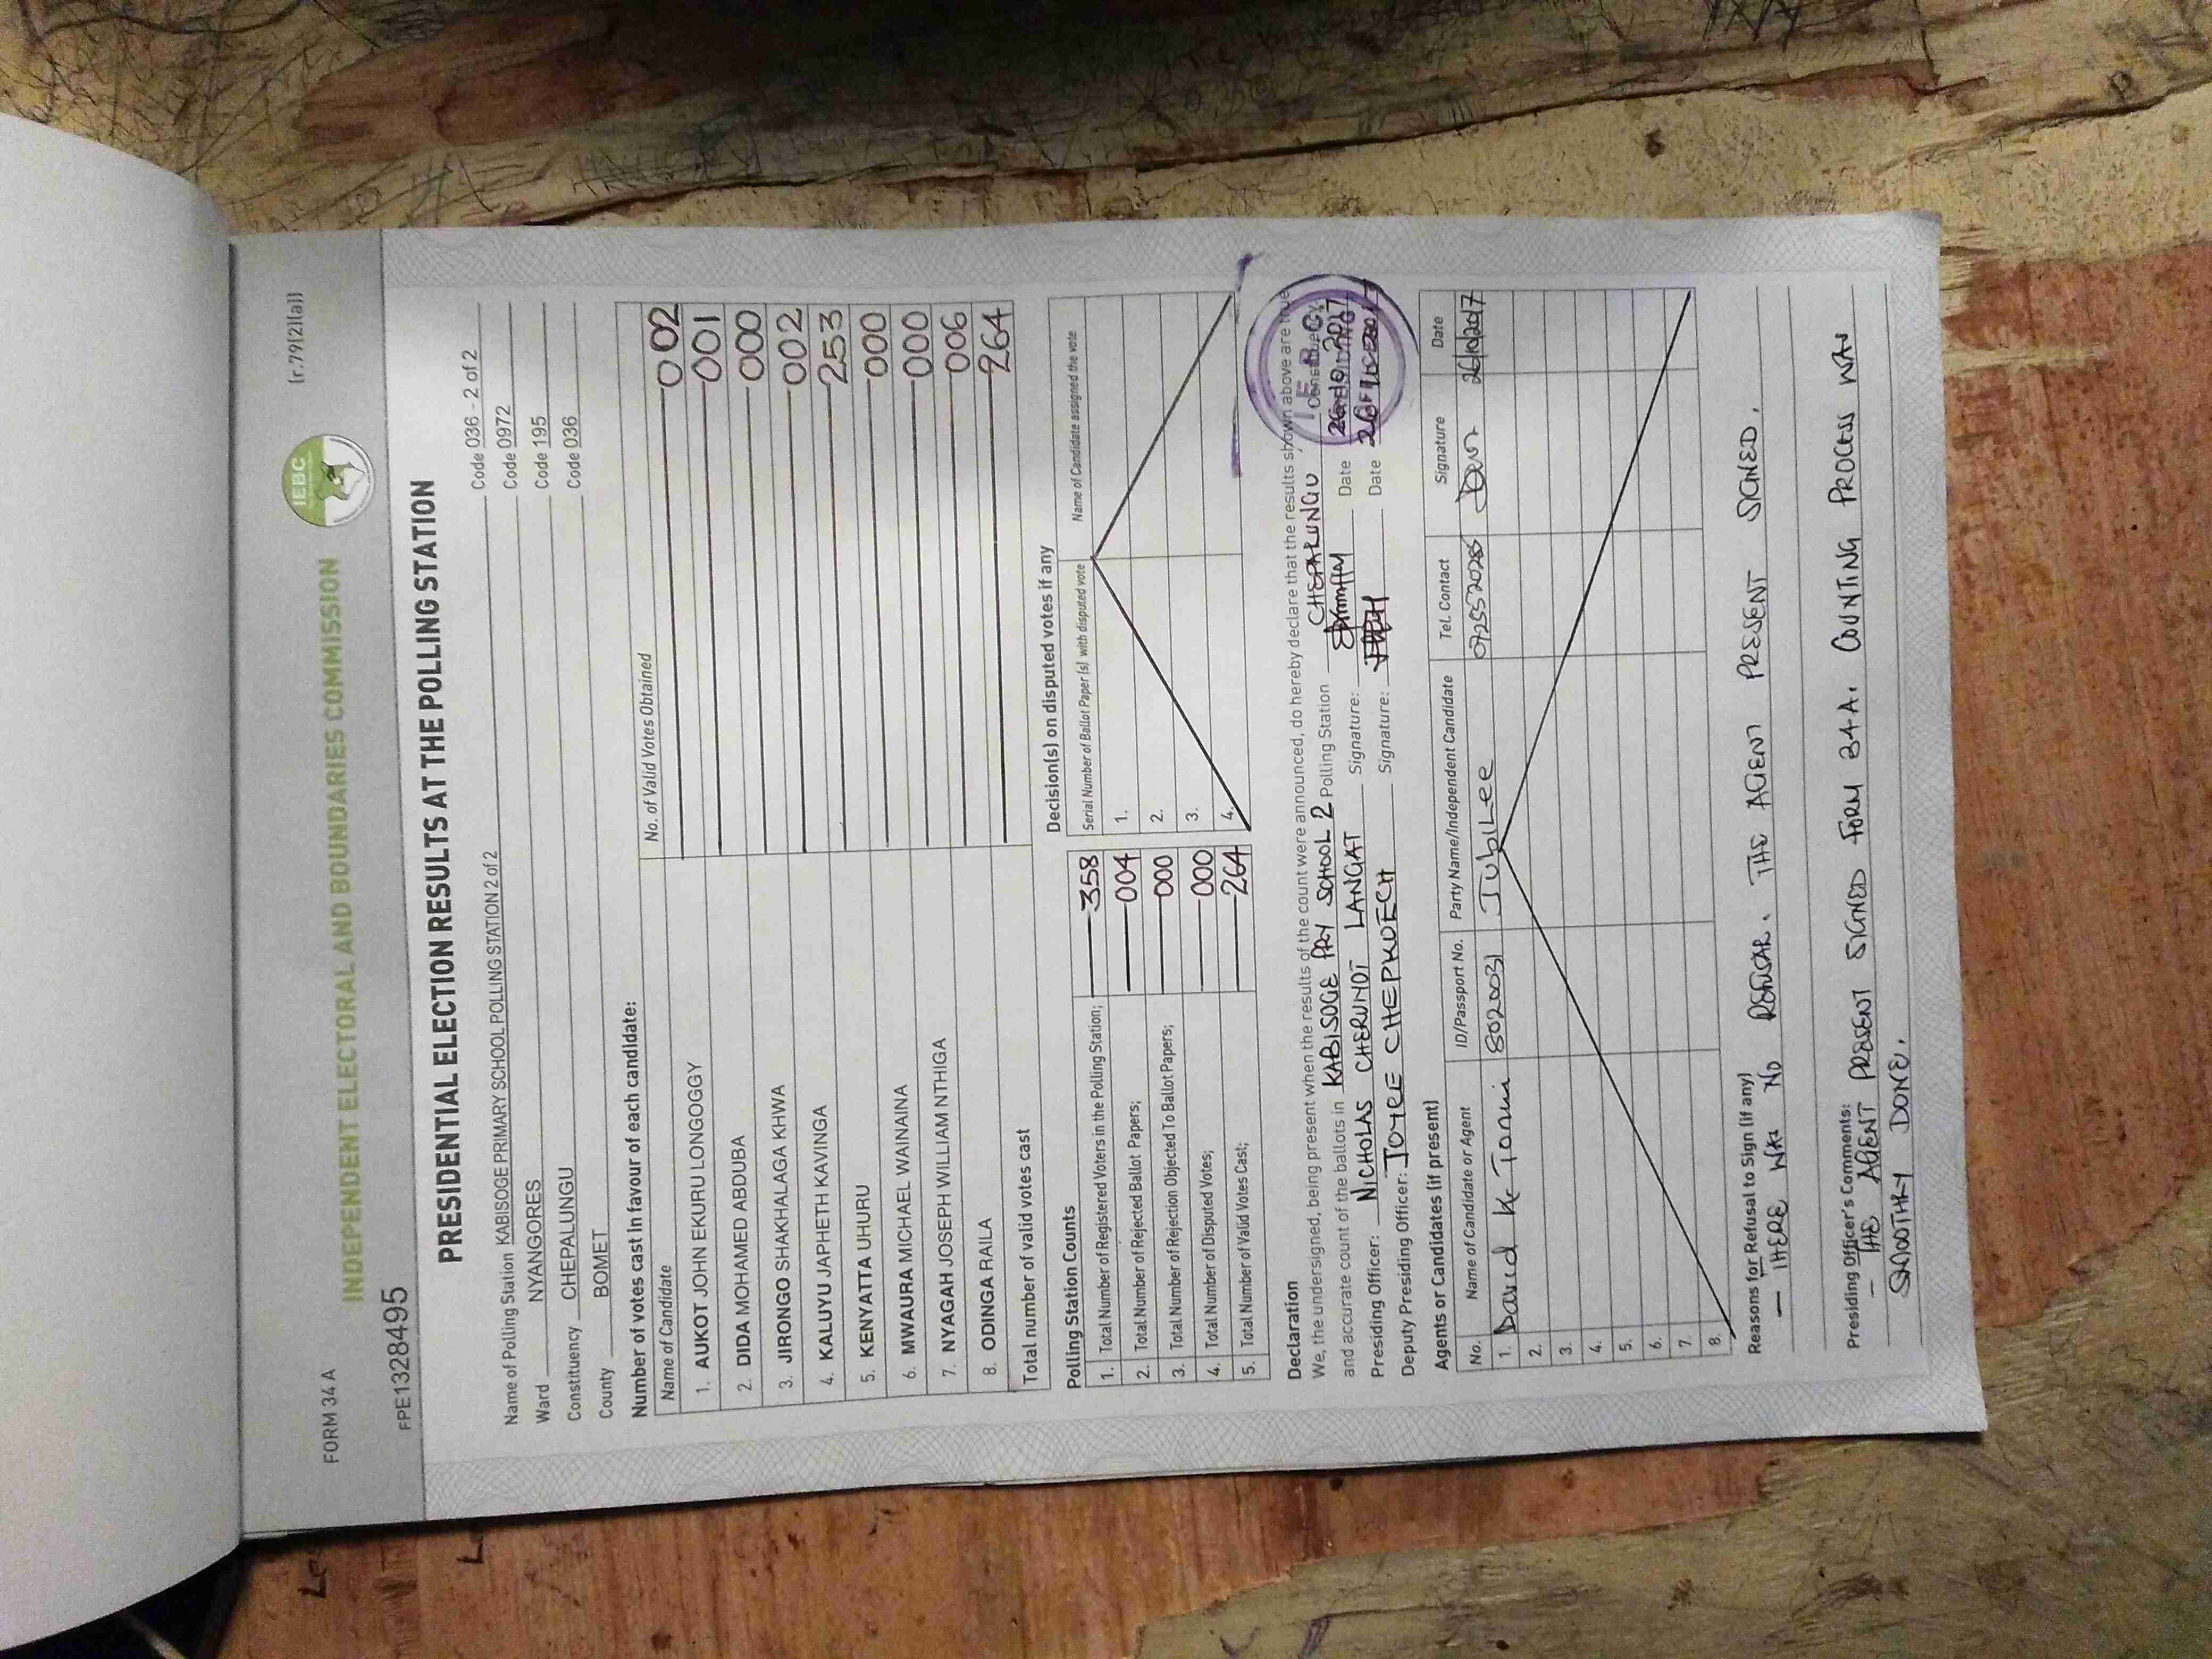 FORM 34 A
INDEPENDENT ELECTORAL AND BOUNDARIES COMMISSION
IEBC
(r.79(2)(a))
FPE1328495
PRESIDENTIAL ELECTION RESULTS AT THE POLLING STATION
Name of Polling Station KABISOGE PRIMARY SCHOOL POLLING STATION 2 of 2 Code 036 - 2 of 2
Ward NYANGORES Code 0972
Constituency CHEPALUNGU Code 195
County BOMET Code 036
Number of votes cast in favour of each candidate:
Name of Candidate No. of Valid Votes Obtained
1. AUKOT JOHN EKURU LONGOGGY 002
2. DIDA MOHAMED ABDUBA 001
3. JIRONGO SHAKHALAGA KHWA 000
4. KALUYU JAPHETH KAVINGA 002
5. KENYATTA UHURU 253
6. MWAURA MICHAEL WAINAINA 000
7. NYAGAH JOSEPH WILLIAM NTHIGA 000
8. ODINGA RAILA 006
Total number of valid votes cast 264
Polling Station Counts
1. Total Number of Registered Voters in the Polling Station; 358
2. Total Number of Rejected Ballot Papers; 004
3. Total Number of Rejection Objected To Ballot Papers; 000
4. Total Number of Disputed Votes; 000
5. Total Number of Valid Votes Cast; 264
Decision(s) on disputed votes if any
Serial Number of Ballot Paper (s) with disputed vote Name of Candidate assigned the vote
1.
2.
3.
4.
Declaration
We, the undersigned, being present when the results of the count were announced, do hereby declare that the results shown above are true
and accurate count of the ballots in KABISOGE PRY SCHOOL 2 Polling Station CHEPALUNGU Constituency.
Presiding Officer: NICHOLAS CHERUNOT LANGAT Signature: Date
Deputy Presiding Officer: JOYCE CHEPKOECH Signature: Date
Agents or Candidates (if present)
No. Name of Candidate or Agent ID/Passport No. Party Name/Independent Candidate Tel. Contact Signature Date
1. David K. 8020031 Jubilee 0725520285 26/10/2017
2.
3.
4.
5.
6.
7.
8.
Reasons for Refusal to Sign (if any)
— THERE WAS NO REFUSAR. THE AGENT PRESENT SIGNED.
Presiding Officer's Comments:
— THE AGENT PRESENT SIGNED FORM 34A. COUNTING PROCESS WAS
SMOOTHLY DONE.